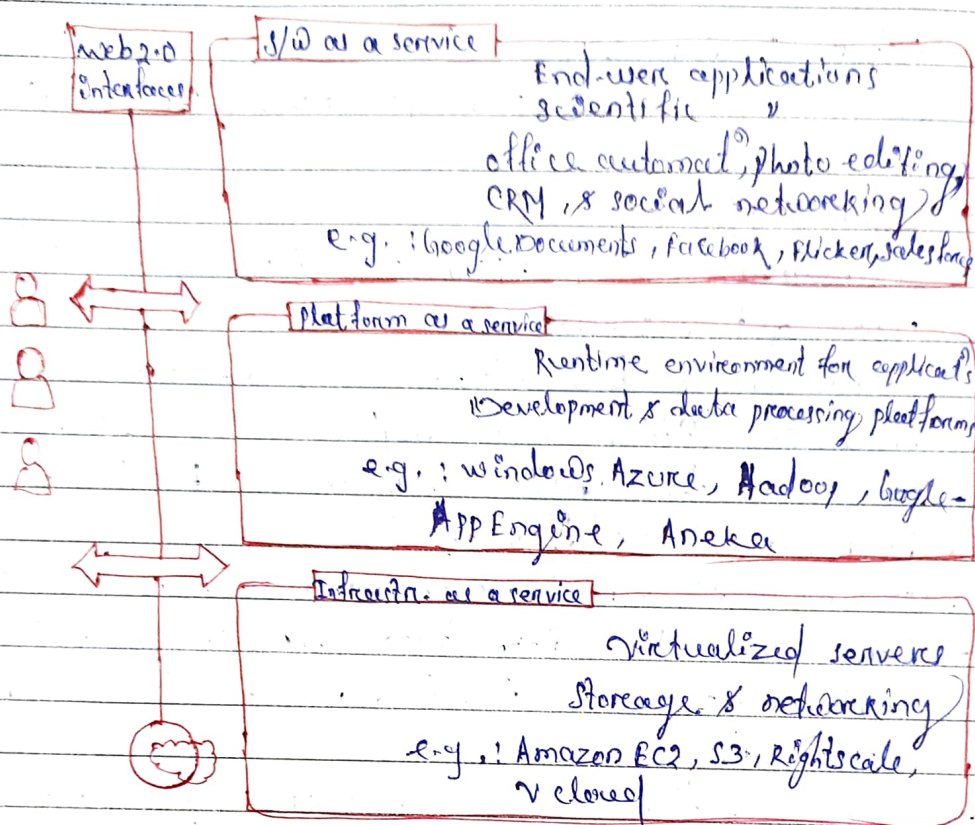 Web 2.0
interfaces
S/W as a service
End-user applications
scientific "
office automatⁿ, photo editing,
CRM, & social networking
e.g. : Google Documents, Facebook, Flicker, Salesforce
Platform as a service
Runtime environment for applicatⁿs
Development & data processing platforms
e.g. : Windows Azure, Hadoop, Google-
AppEngine, Aneka
Infrastr. as a service
Virtualized servers
Storage & networking
e.g. : Amazon EC2, S3, Rightscale,
vcloud